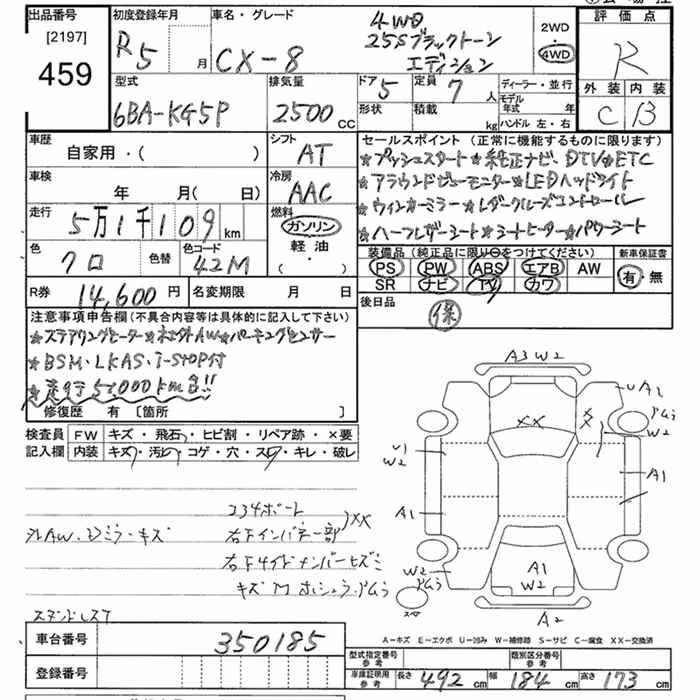 出品番号 初度登録年月 車名・グレード 評価点
[2197]
459
R5 月 CX-8
4WD
25Sブラックトーン
エディション
2WD
4WD
R
外装 内装
C B
型式 排気量 ドア 定員 ディーラー・並行
6BA-KG5P 2500 CC 5 7 人
形状 積載 kg
モデル年式 年
ハンドル 左・右
車歴 シフト
自家用・( ) AT
車検 冷房
年 月( 日) AAC
走行 燃料
5万1千109 km ガソリン
軽油
・( )
色 色替 色コード
クロ 42M
R券 14,600円 名変期限 月 日
セールスポイント(正常に機能するものに限ります)
★プッシュスタート★純正ナビ、DTV★ETC
★アラウンドビューモニター★LEDヘッドライト
★ウィンカーミラー★レーダークルーズコントロール
★ハーフレザーシート★シートヒーター★パワーシート
装備品(純正品に限り○をつけてください) 新車保証書
PS PW ABS エアB AW 有・無
SR ナビ TV カワ
後日品
保
注意事項申告欄(不具合内容等は具体的に記入して下さい)
★ステアリングヒーター★社外AW★パーキングセンサー
★BSM、LKAS、i-STOP付
修復歴 有 [箇所 ]
検査員 FW キズ・飛石・ヒビ割・リペア跡・×要
記入欄 内装 キズ・汚れ・コゲ・穴・スレ・キレ・破レ
コシボート
右ドインパネ一部 XX
ミラーキズ
A3 W2
XX
UA2
W2
U1
W2
A1
A1
W2
A1
W2
A2
スペア
A-キズ E-エクボ U-凹み W-補修跡 S-サビ C-腐食 XX-交換済
車台番号 350185
登録番号
型式指定番号 参考 類別区分番号 参考
車庫証明用 参考 長さ 492 cm 幅 184 cm 高さ 173 cm